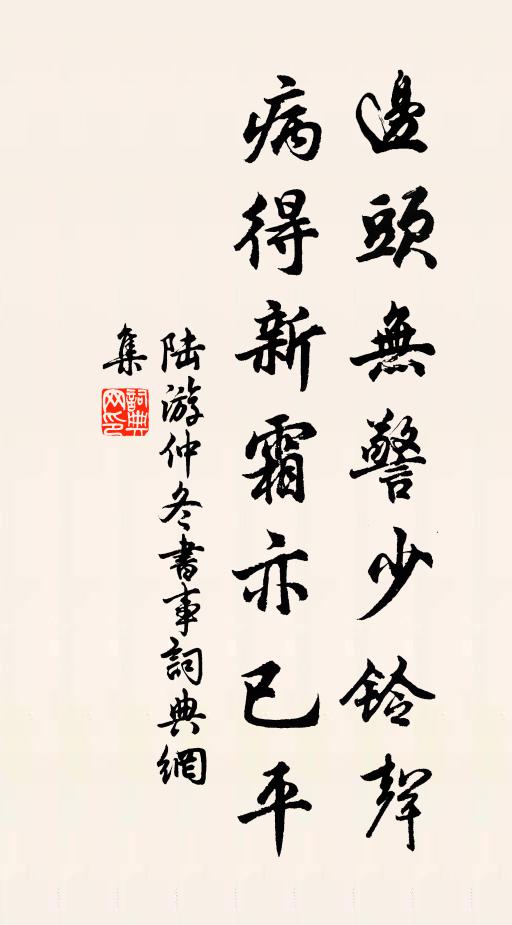 邊頭無警少鈴聲
病得新霜亦已平
陸游仲冬書事詞典網
集
詞典
网印